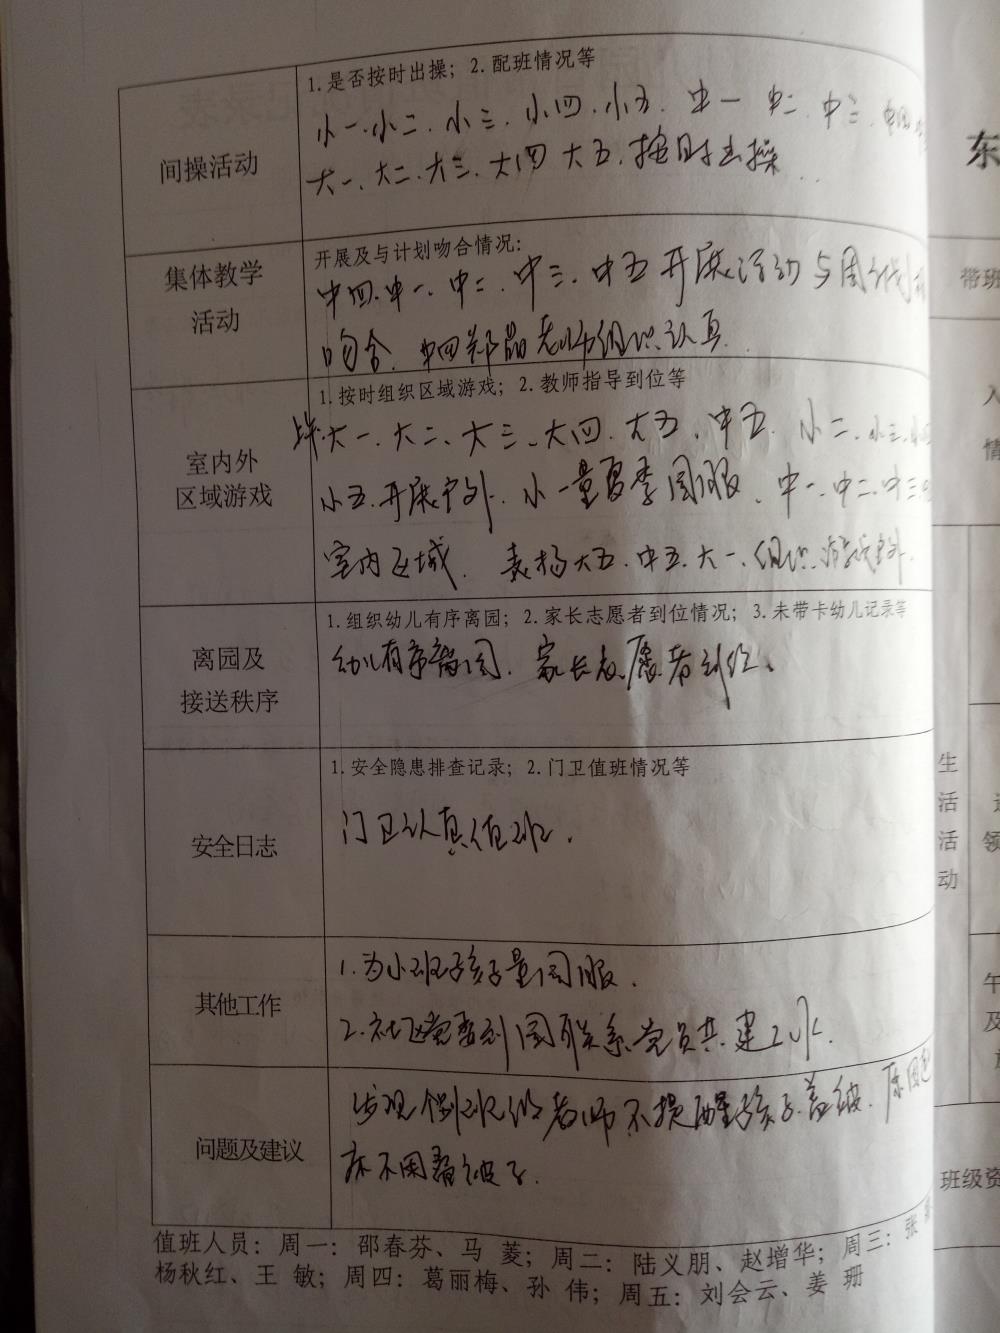 1. 是否按时出操；2. 配班情况等
小一、小二、小三、小四、小五、中一、中二、中三、中四、
间操活动
大一、大二、大三、大四 大五、按时出操
开展及与计划吻合情况：
集体教学
活动
中四、中一、中二、中三、中五开展活动与周计划
吻合、中四郑晶老师组织认真、
1. 按时组织区域游戏；2. 教师指导到位等
大一、大二、大三、大四、大五、中五、小二、小三、
室内外
区域游戏
小五、开展户外、小一量夏季园服、中一、中二、中三
室内区域、表扬大五、中五、大一、组织游戏
1. 组织幼儿有序离园；2. 家长志愿者到位情况；3. 未带卡幼儿记录等
离园及
接送秩序
幼儿有序离园、家长志愿者到位、
1. 安全隐患排查记录；2. 门卫值班情况等
安全日志
门卫认真值班、
其他工作
1. 为小班孩子量园服、
2. 社区党委到园联系党员共建工作、
问题及建议
发现个别班级老师不提醒孩子盖被、
不用着被子、
值班人员：周一：邵春芬、马 菱；周二：陆义朋、赵增华；周三：张
杨秋红、王 敏；周四：葛丽梅、孙 伟；周五：刘会云、姜 珊
东
带班
人
情
生
活
活
动
领
午
及
班级资